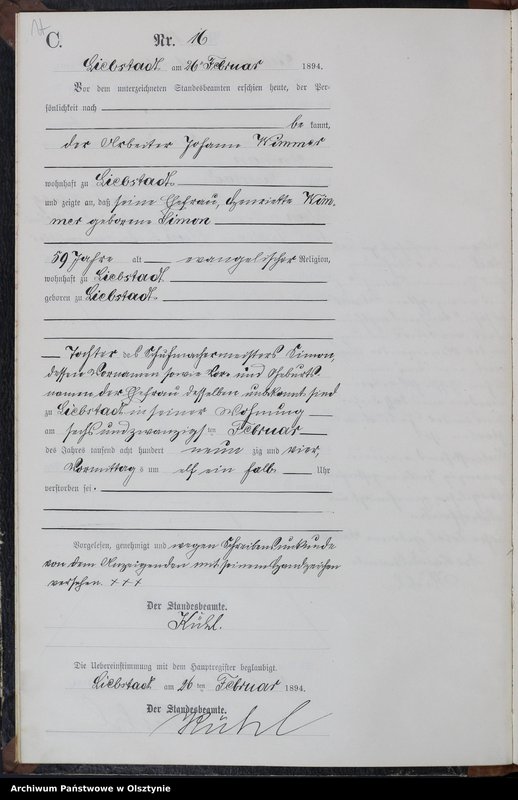 C. Nr. 16
Liebstadt am 26ten Februar 1894.
Vor dem unterzeichneten Standesbeamten erschien heute, der Per-
sönlichkeit nach
be kannt,
der Arbeiter Johann Kimmer
wohnhaft zu Liebstadt
und zeigte an, daß seine Ehefrau, Henriette Kim-
mer geborene Simon
59 Jahre alt evangelischer Religion,
wohnhaft zu Liebstadt
geboren zu Liebstadt
Tochter des Schuhmachermeisters Simon,
dessen Vornamen sowie Vor- und Geburts-
namen der Ehefrau desselben unbekannt sind
zu Liebstadt in seiner Wohnung
am sechs und zwanzigsten Februar
des Jahres tausend acht hundert neun zig und vier,
Vormittag s um elf ein halb Uhr
verstorben sei.
Vorgelesen, genehmigt und wegen Schreibensunkunde
von dem Anzeigenden mit seinem Handzeichen
versehen. + + +
Der Standesbeamte.
Kühl.
Die Uebereinstimmung mit dem Hauptregister beglaubigt.
Liebstadt am 26 ten Februar 1894.
Der Standesbeamte.
Kühl
Archiwum Państwowe w Olsztynie